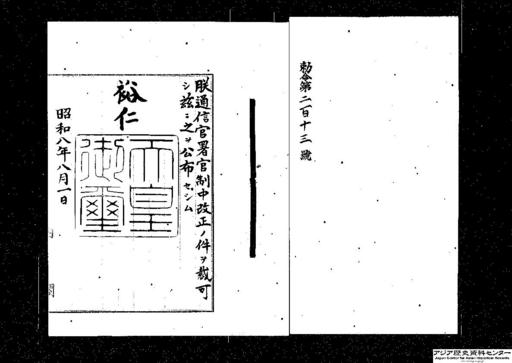 勅令第二百十三號
朕逓信官署官制中改正ノ件ヲ裁可
シ茲ニ之ヲ公布セシム
裕仁
天皇御璽
昭和八年八月一日
アジア歴史資料センター
Japan Center for Asian Historical Records